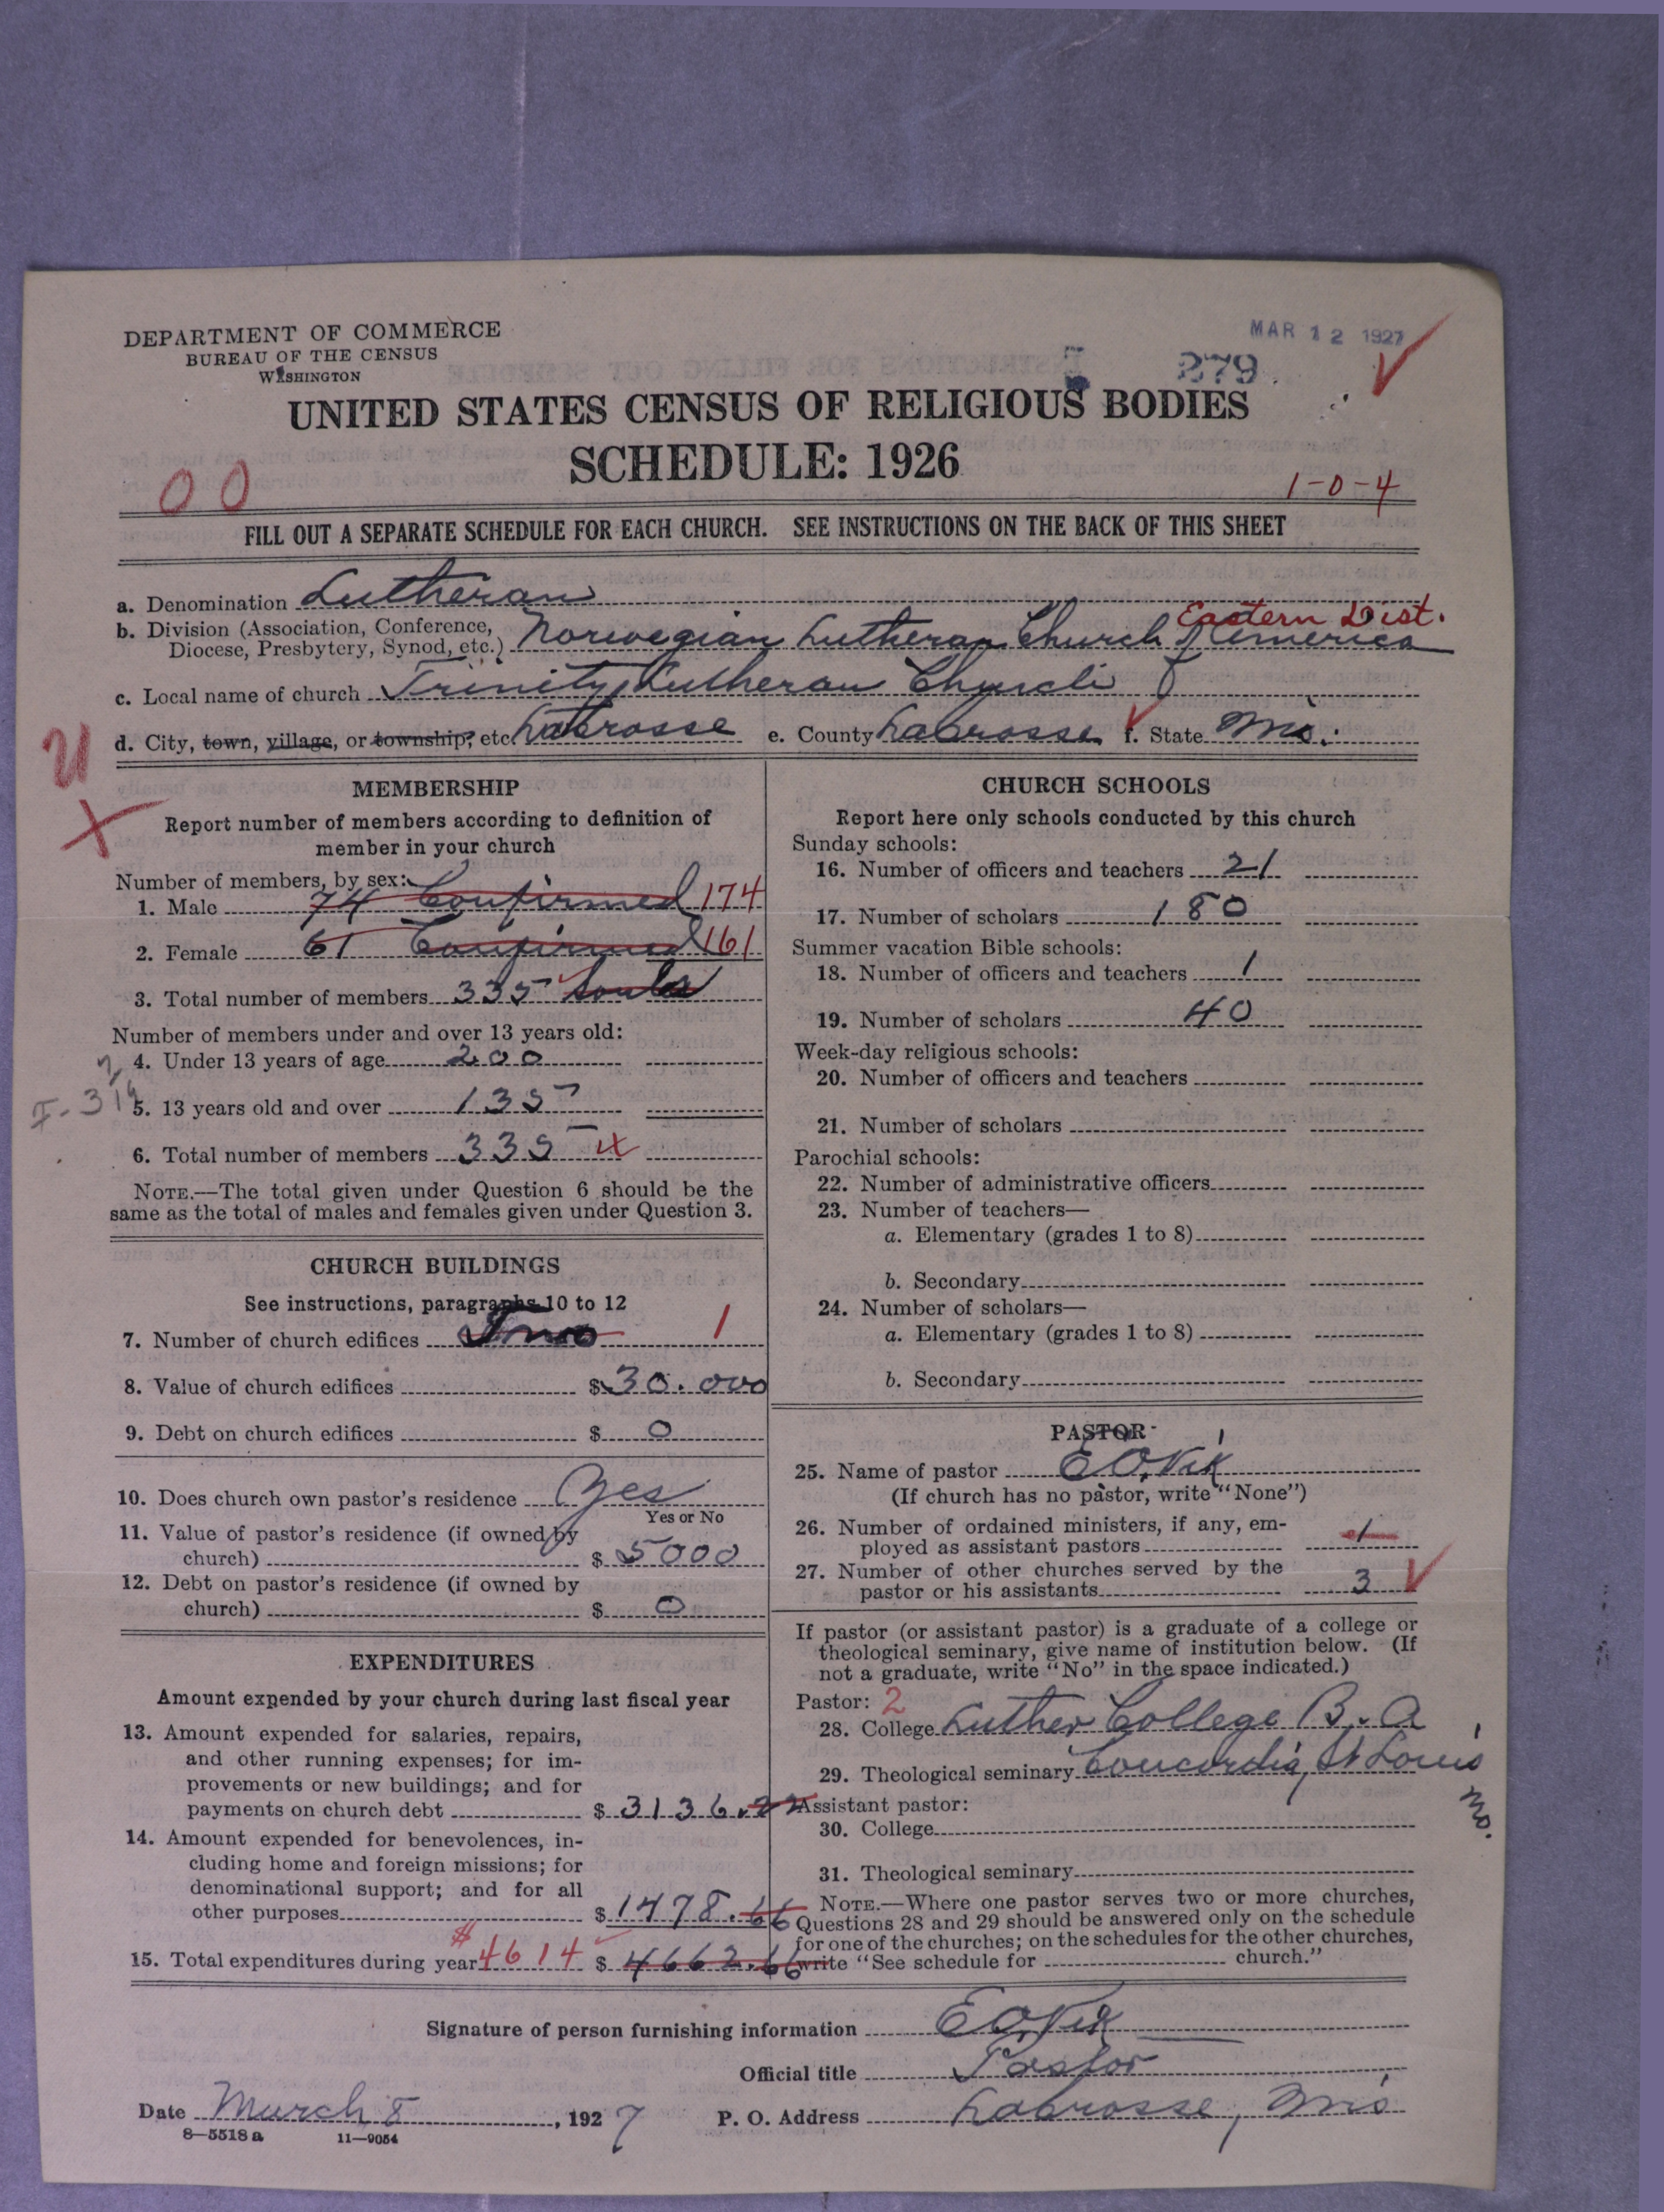 DEPARTMENT OF COMMERCE
BUREAU OF THE CENSUS
WASHINGTON
MAR 12 1927
279
UNITED STATES CENSUS OF RELIGIOUS BODIES
SCHEDULE: 1926
00
1-0-4
FILL OUT A SEPARATE SCHEDULE FOR EACH CHURCH. SEE INSTRUCTIONS ON THE BACK OF THIS SHEET
a. Denomination Lutheran
Eastern Dist.
b. Division (Association, Conference, Diocese, Presbytery, Synod, etc.) Norwegian Lutheran Church of America
c. Local name of church Trinity Lutheran Church
d. City, town, village, or township, etc. LaCrosse e. County LaCrosse f. State Wis.
MEMBERSHIP
Report number of members according to definition of
member in your church
Number of members, by sex:
1. Male 74 Confirmed 174
2. Female 61 Confirmed 161
3. Total number of members 335 Souls
Number of members under and over 13 years old:
4. Under 13 years of age 200
5. 13 years old and over 135
6. Total number of members 335
NOTE.—The total given under Question 6 should be the
same as the total of males and females given under Question 3.
CHURCH BUILDINGS
See instructions, paragraphs 10 to 12
7. Number of church edifices Two 1
8. Value of church edifices $ 30.000
9. Debt on church edifices $ 0
10. Does church own pastor's residence Yes
Yes or No
11. Value of pastor's residence (if owned by
church) $ 5000
12. Debt on pastor's residence (if owned by
church) $ 0
EXPENDITURES
Amount expended by your church during last fiscal year
13. Amount expended for salaries, repairs,
and other running expenses; for im-
provements or new buildings; and for
payments on church debt $ 3136.22
14. Amount expended for benevolences, in-
cluding home and foreign missions; for
denominational support; and for all
other purposes $ 1478.66
15. Total expenditures during year $4614 $ 4662.66
CHURCH SCHOOLS
Report here only schools conducted by this church
Sunday schools:
16. Number of officers and teachers 21
17. Number of scholars 180
Summer vacation Bible schools:
18. Number of officers and teachers 1
19. Number of scholars 40
Week-day religious schools:
20. Number of officers and teachers
21. Number of scholars
Parochial schools:
22. Number of administrative officers
23. Number of teachers—
a. Elementary (grades 1 to 8)
b. Secondary
24. Number of scholars—
a. Elementary (grades 1 to 8)
b. Secondary
PASTOR
25. Name of pastor E O. Vik
(If church has no pastor, write "None")
26. Number of ordained ministers, if any, em-
ployed as assistant pastors 1
27. Number of other churches served by the
pastor or his assistants 3
If pastor (or assistant pastor) is a graduate of a college or
theological seminary, give name of institution below. (If
not a graduate, write "No" in the space indicated.)
Pastor: 2
28. College Luther College B. A
29. Theological seminary Concordia, St Louis Mo.
Assistant pastor:
30. College
31. Theological seminary
NOTE.—Where one pastor serves two or more churches,
Questions 28 and 29 should be answered only on the schedule
for one of the churches; on the schedules for the other churches,
write "See schedule for church."
Signature of person furnishing information E O. Vik
Official title Pastor
Date March 8, 1927 P. O. Address LaCrosse, Wis
8—5518 a 11—9054